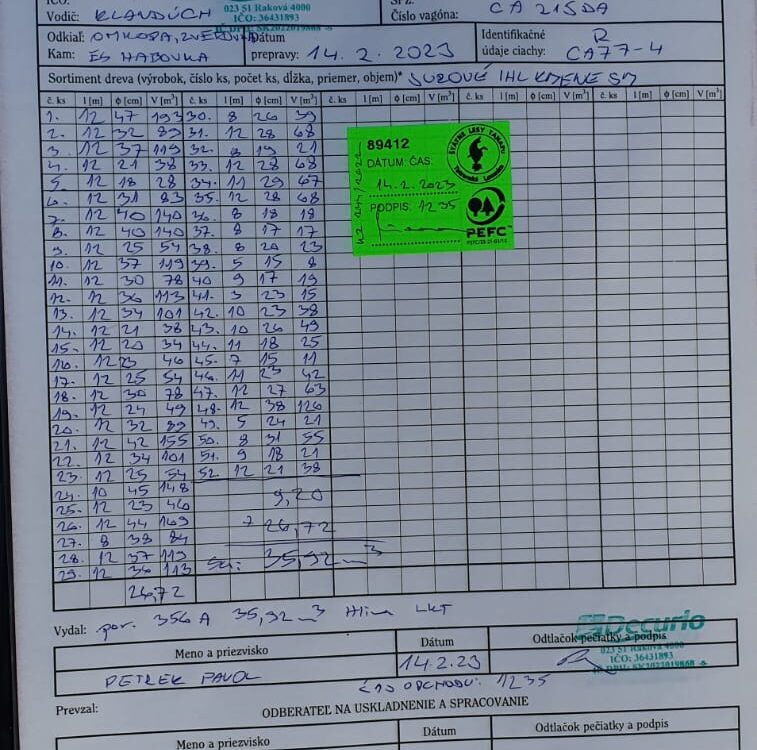 IČO:
023 51 Raková 4000
ŠPZ:
Vodič: KLANDÚCH
IČO: 36431893
Číslo vagóna: CA 215DA
IČ DPH: SK2022019868
Odkiaľ: OMKOPA, ZVEROVKA
Dátum
Identifikačné R
Kam: ES HABOVKA
prepravy: 14.2.2023
údaje ciachy: CA77-4
Sortiment dreva (výrobok, číslo ks, počet ks, dĺžka, priemer, objem)* SUROVÉ IHL KMENE SM
č. ks l [m] ϕ [cm] V [m³] č. ks l [m] ϕ [cm] V [m³] č. ks l [m] ϕ [cm] V [m³] č. ks l [m] ϕ [cm] V [m³] č. ks l [m] ϕ [cm] V [m³]
1. 12 47 193 30. 8 26 39
2. 12 32 89 31. 12 28 68
3. 12 37 119 32. 8 19 21
4. 12 21 38 33. 12 28 68
5 12 18 28 34. 11 29 67
6. 12 31 83 35. 12 28 68
7. 12 40 140 36. 8 18 18
8. 12 40 140 37. 8 17 17
9. 12 25 54 38. 8 20 23
10. 12 37 119 39. 5 15 8
11. 12 30 78 40 9 17 19
12. 12 36 113 41. 3 23 15
13. 12 34 101 42. 10 23 38
14. 12 21 38 43. 10 26 49
15. 12 20 34 44. 11 18 25
16. 12 23 46 45. 7 15 11
17. 12 25 54 46. 11 23 42
18. 12 30 78 47. 12 27 63
19. 12 24 49 48. 12 38 126
20. 12 32 89 49. 5 24 21
21. 12 42 155 50. 8 31 55
22. 12 34 101 51. 9 18 21
23. 12 25 54 52. 12 21 38
24. 10 45 148
9,20
25. 12 23 46
26. 12 44 169
26,72
27. 8 38 84
28. 12 37 119
35,92 m³
29. 12 36 113
26,72
89412
DÁTUM: ČAS:
14.2.2023
PODPIS: 1235
ŠTÁTNE LESY TANAPU
Tatranská Lomnica
PEFC
Vydal: por. 356 A 35,92 m³ Hlina LKT
Decurio
Meno a priezvisko
Dátum
Odtlačok pečiatky a podpis
023 51 Raková 4000
IČO: 36431893
IČ DPH: SK2022019868
PETREK PAVOL
14.2.23
ČAS ODCHODU: 1235
Prevzal:
ODBERATEĽ NA USKLADNENIE A SPRACOVANIE
Meno a priezvisko
Dátum
Odtlačok pečiatky a podpis